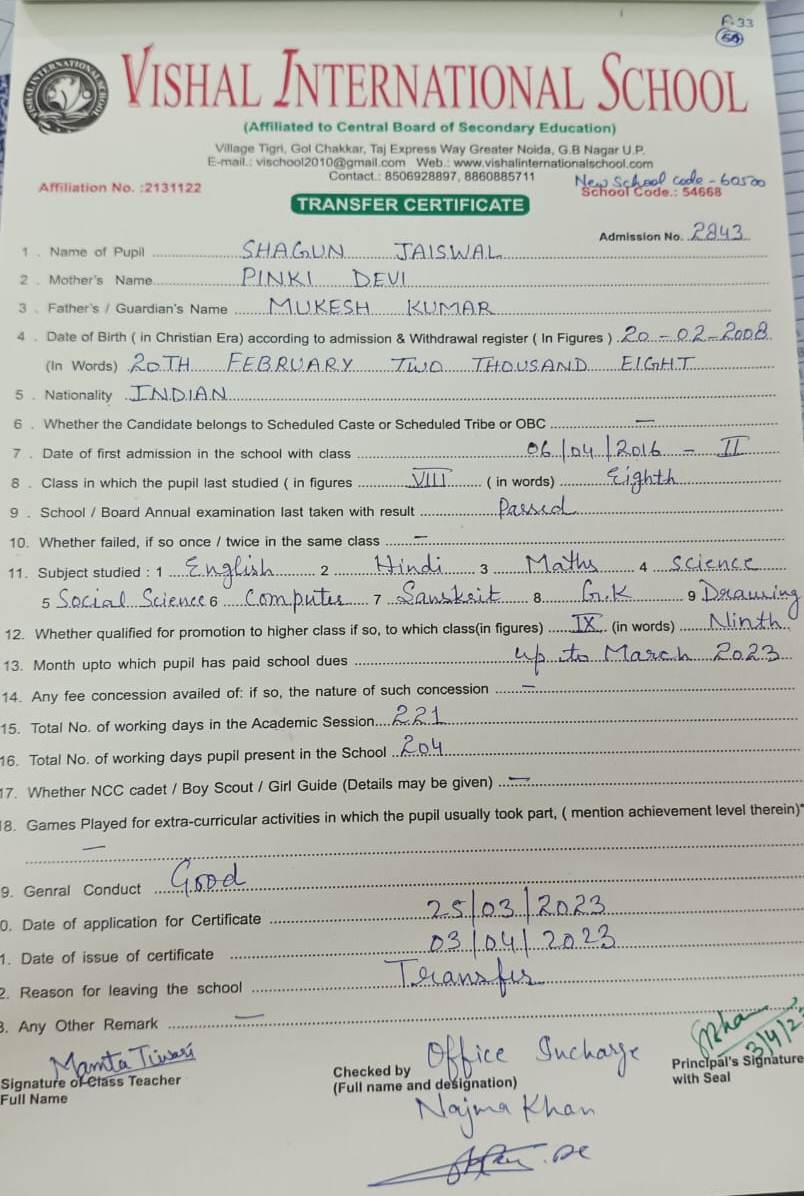 F.33
VISHAL INTERNATIONAL SCHOOL
(Affiliated to Central Board of Secondary Education)
Village Tigri, Gol Chakkar, Taj Express Way Greater Noida, G.B Nagar U.P.
E-mail.: vischool2010@gmail.com Web.: www.vishalinternationalschool.com
Contact.: 8506928897, 8860885711
New School code - 60500
Affiliation No. :2131122
School Code.: 54668
TRANSFER CERTIFICATE
Admission No. 2843
1 . Name of Pupil SHAGUN JAISWAL
2 . Mother's Name PINKI DEVI
3 . Father's / Guardian's Name MUKESH KUMAR
4 . Date of Birth ( in Christian Era) according to admission & Withdrawal register ( In Figures ) 20-02-2008
(In Words) 20TH FEBRUARY TWO THOUSAND EIGHT
5 . Nationality INDIAN
6 . Whether the Candidate belongs to Scheduled Caste or Scheduled Tribe or OBC —
7 . Date of first admission in the school with class 06/04/2016 - II
8 . Class in which the pupil last studied ( in figures VIII ( in words) Eighth
9 . School / Board Annual examination last taken with result Passed
10. Whether failed, if so once / twice in the same class —
11. Subject studied : 1 English 2 Hindi 3 Maths 4 Science
5 Social Science 6 Computer 7 Sanskrit 8 G.K 9 Drawing
12. Whether qualified for promotion to higher class if so, to which class(in figures) IX (in words) Ninth
13. Month upto which pupil has paid school dues up to March 2023
14. Any fee concession availed of: if so, the nature of such concession —
15. Total No. of working days in the Academic Session 221
16. Total No. of working days pupil present in the School 204
17. Whether NCC cadet / Boy Scout / Girl Guide (Details may be given) —
18. Games Played for extra-curricular activities in which the pupil usually took part, ( mention achievement level therein)*
—
9. Genral Conduct Good
0. Date of application for Certificate 25/03/2023
1. Date of issue of certificate 03/04/2023
2. Reason for leaving the school Transfer
3. Any Other Remark —
Mamta Tiwari
Signature of Class Teacher
Full Name
Checked by Office Incharge
(Full name and designation)
Najma Khan
3/4/2
Principal's Signature
with Seal